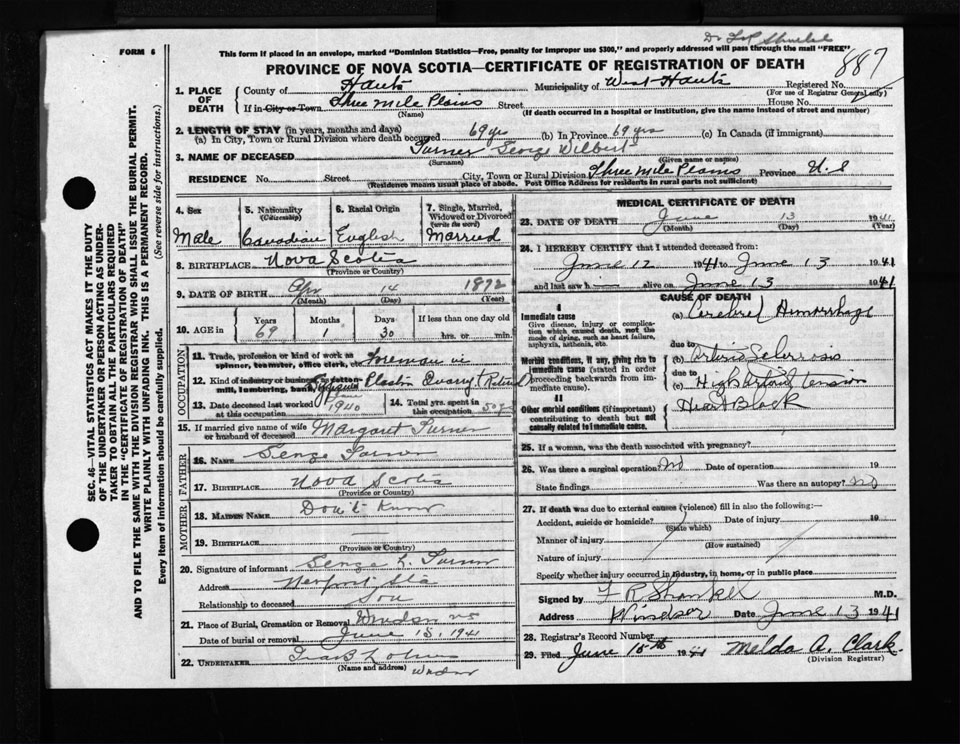 FORM 6
Dr F R Shankel
887
This form if placed in an envelope, marked "Dominion Statistics—Free, penalty for improper use $300," and properly addressed will pass through the mail "FREE"
PROVINCE OF NOVA SCOTIA—CERTIFICATE OF REGISTRATION OF DEATH
1. PLACE OF DEATH
County of Hants Municipality of West Hants Registered No.
(For use of Registrar General only)
If in City or Town Three Mile Plains Street House No.
(Name) (If death occurred in a hospital or institution, give the name instead of street and number)
2. LENGTH OF STAY (in years, months and days)
(a) In City, Town or Rural Division where death occurred 69 yrs (b) In Province 69 yrs (c) In Canada (if immigrant)
3. NAME OF DECEASED Turner George Wilbert
(Surname) (Given name or names)
RESIDENCE No. Street City, Town or Rural Division Three Mile Plains Province N.S
(Residence means usual place of abode. Post Office Address for residents in rural parts not sufficient)
4. Sex Male
5. Nationality (Citizenship) Canadian
6. Racial Origin English
7. Single, Married, Widowed or Divorced (write the word) Married
8. BIRTHPLACE Nova Scotia
(Province or Country)
9. DATE OF BIRTH Apr 14 1872
(Month) (Day) (Year)
10. AGE in Years 69 Months 1 Days 30 If less than one day old hrs. or min.
OCCUPATION
11. Trade, profession or kind of work as spinner, teamster, office clerk, etc. Foreman in
12. Kind of industry or business as cotton-mill, lumbering, bank, Gypsum Plaster Quarry Retired
13. Date deceased last worked at this occupation June 1940
14. Total yrs. spent in this occupation 50 yrs
15. If married give name of wife or husband of deceased Margaret Turner
FATHER
16. NAME George Turner
17. BIRTHPLACE Nova Scotia
(Province or Country)
MOTHER
18. MAIDEN NAME Don't Know
19. BIRTHPLACE —
(Province or Country)
20. Signature of informant George L. Turner
Address Newport Sta
Relationship to deceased Son
21. Place of Burial, Cremation or Removal Windsor NS
Date of burial or removal June 15, 1941
22. UNDERTAKER
(Name and address) Windsor
MEDICAL CERTIFICATE OF DEATH
23. DATE OF DEATH June 13 1941
(Month) (Day) (Year)
24. I HEREBY CERTIFY that I attended deceased from:
June 12 1941 to June 13 1941
and last saw h— alive on June 13 1941
CAUSE OF DEATH
I
Immediate cause
Give disease, injury or complication which caused death, not the mode of dying, such as heart failure, asphyxia, asthenia, etc.
(a) Cerebral Hemorrhage
due to
Morbid conditions, if any, giving rise to immediate cause (stated in order proceeding backwards from immediate cause).
(b) Arterio Sclerosis
due to
(c) High Arterial tension
II
Other morbid conditions (if important) contributing to death but not causally related to immediate cause.
Heart Block
25. If a woman, was the death associated with pregnancy?
26. Was there a surgical operation? No Date of operation 19
State findings Was there an autopsy? No
27. If death was due to external causes (violence) fill in also the following:—
Accident, suicide or homicide? Date of injury 19
(State which)
Manner of injury
(How sustained)
Nature of injury
Specify whether injury occurred in industry, in home, or in public place
Signed by F R Shankel M.D.
Address Windsor Date June 13 1941
28. Registrar's Record Number
29. Filed June 15th 1941 Melda A. Clark.
(Division Registrar)
SEC. 46—VITAL STATISTICS ACT MAKES IT THE DUTY
OF THE UNDERTAKER OR PERSON ACTING AS UNDERTAKER TO OBTAIN ALL THE PARTICULARS REQUIRED
IN THE "CERTIFICATE OF REGISTRATION OF DEATH"
AND TO FILE THE SAME WITH THE DIVISION REGISTRAR WHO SHALL ISSUE THE BURIAL PERMIT.
WRITE PLAINLY WITH UNFADING INK. THIS IS A PERMANENT RECORD.
Every item of information should be carefully supplied. (See reverse side for instructions.)